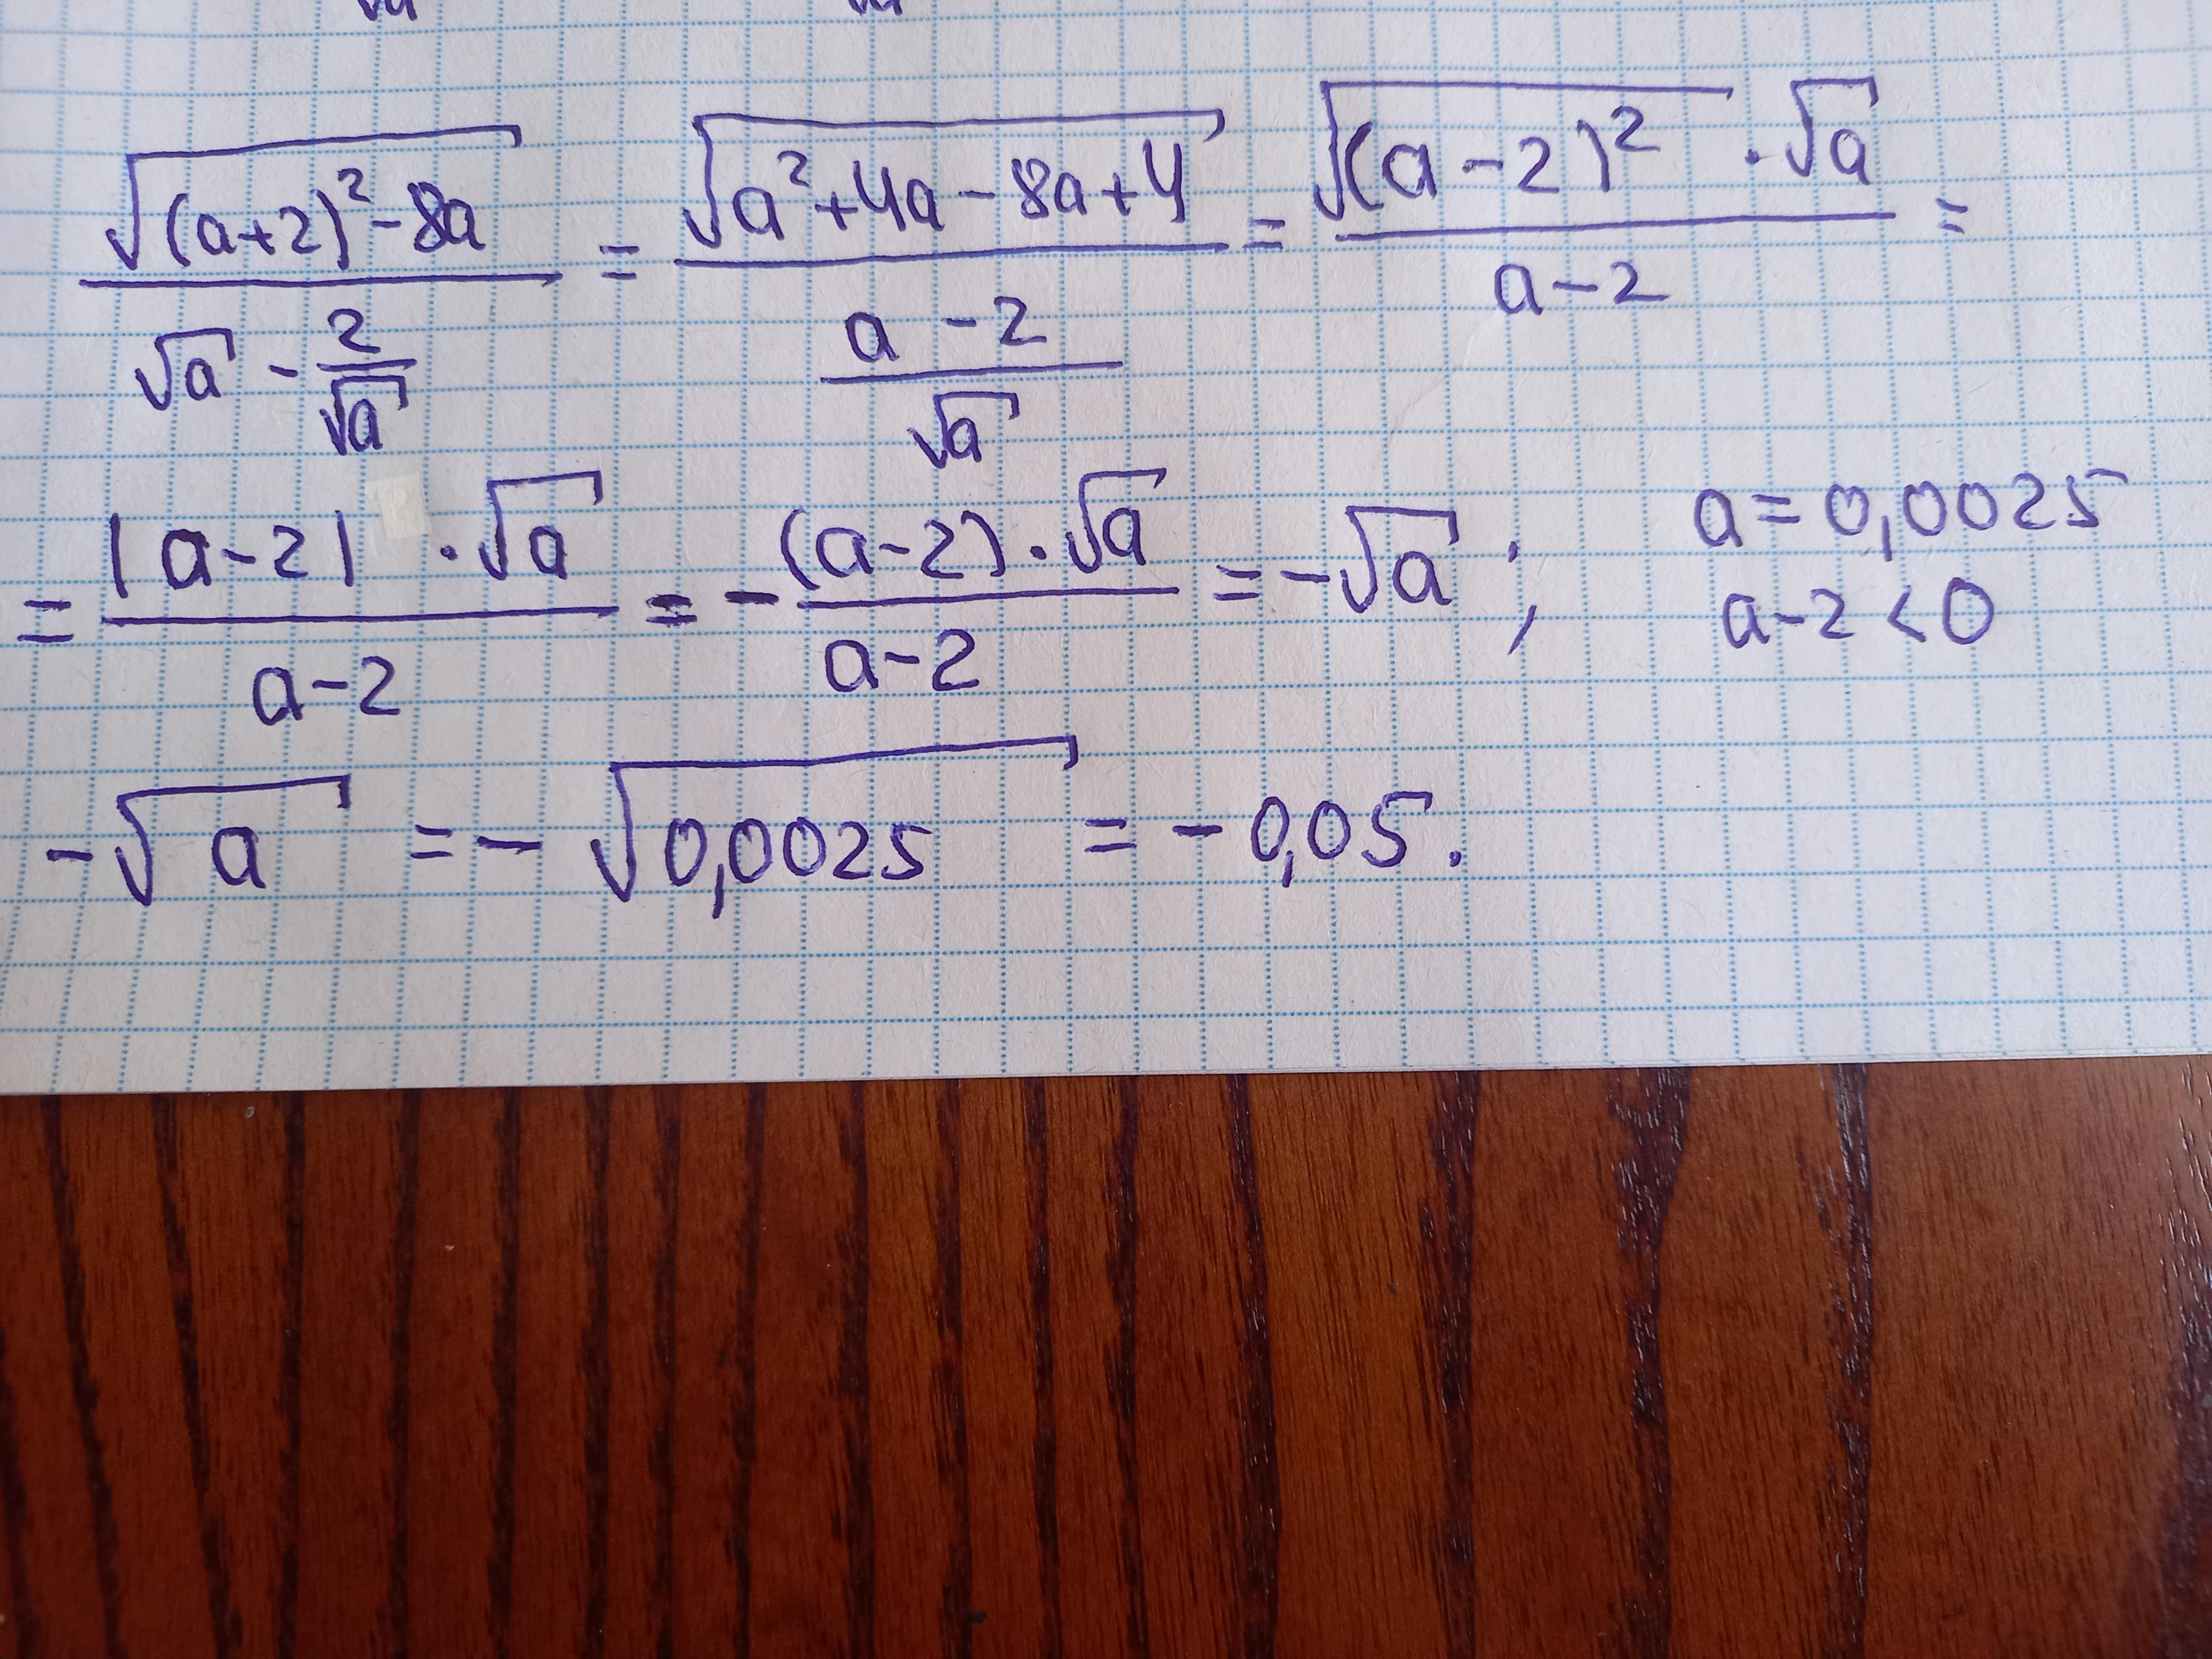 √((a+2)²-8a) / (√a - 2/√a) = √(a²+4a-8a+4) / ((a-2)/√a) = √((a-2)²)·√a / (a-2) =
= |a-2|·√a / (a-2) = - (a-2)·√a / (a-2) = -√a ; a=0,0025
a-2<0
-√a = -√0,0025 = -0,05.